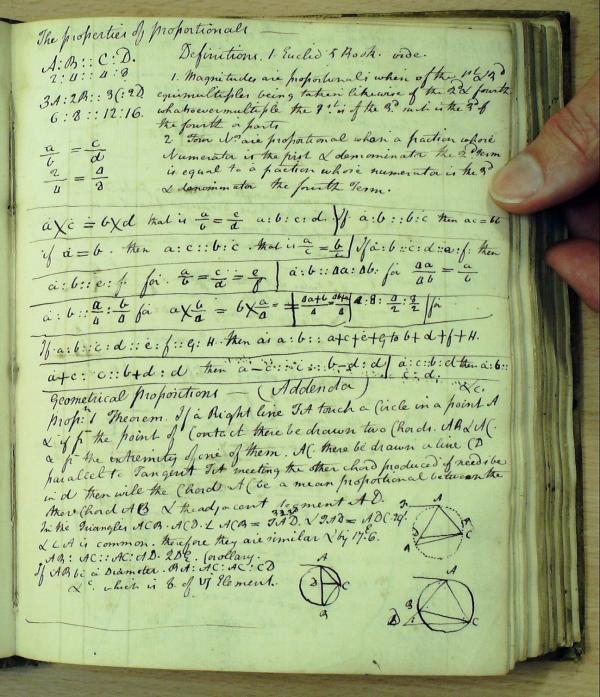 The properties of proportionals
A : B :: C : D. Definitions. 1. Euclid 5 Book. vide.
2 : 4 :: 4 : 8
1. Magnitudes are proportionals when of the 1st & 3d
3A : 2B :: 3C : 2D equimultiples being taken likewise of the 2d & fourth
6 : 8 :: 12 : 16. whatsoever multiple the 1st is of the 2d is the 3d of
the fourth or parts
a/b = c/d 2 Four Nos. are proportional when a fraction whose
Numerator is the first & denominator the 2d term
2/4 = 4/8 is equal to a fraction whose numerator is the 3d
& denominator the fourth Term.
that is a/b = c/d a : b : c : d If a : b :: b : c then ac = bb
if a = b. then a : c :: b : c. that is a/c = b/c If a : b :: c : d :: e : f. then
a : b :: e : f. for. a/b = c/d = e/f a : b :: Δa : Δb. for Δa/Δb = a/b
a : b :: a/Δ : b/Δ for a × b/Δ = b × a/Δ
If a : b :: c : d :: e : f :: G : H. then as a : b :: a+c+e+G to b+d+f+H.
a+c : c :: b+d : d then a-c : c :: b-d : d a : c : b : d then a : b ::
c : d. &c.
Geometrical Proportions (Addenda)
Prop: 1 Theorem. If a Right line TA touch a Circle in a point A
& if fm the point of Contact there be drawn two Chords. AB & AC.
& fm the extremity of one of them. AC. there be drawn a line CD
parallel to Tangent TA meeting the other chord produced if needs be
in d then will the Chord AC be a mean proportional between the
other Chord AB & the adjacent segment AD.
In the Triangles ACB. ACD. ∠ ACB = TAB. & TAB = ADC 29.
& ∠ A is common. therefore they are similar & by 17.6.
AB : AC :: AC : AD. QDE. Corollary.
If AB be a Diameter. BA : AC : AC : CD
&c. which is 8. of VI Element.
T A
B C
A
D C
B
A
B C
D